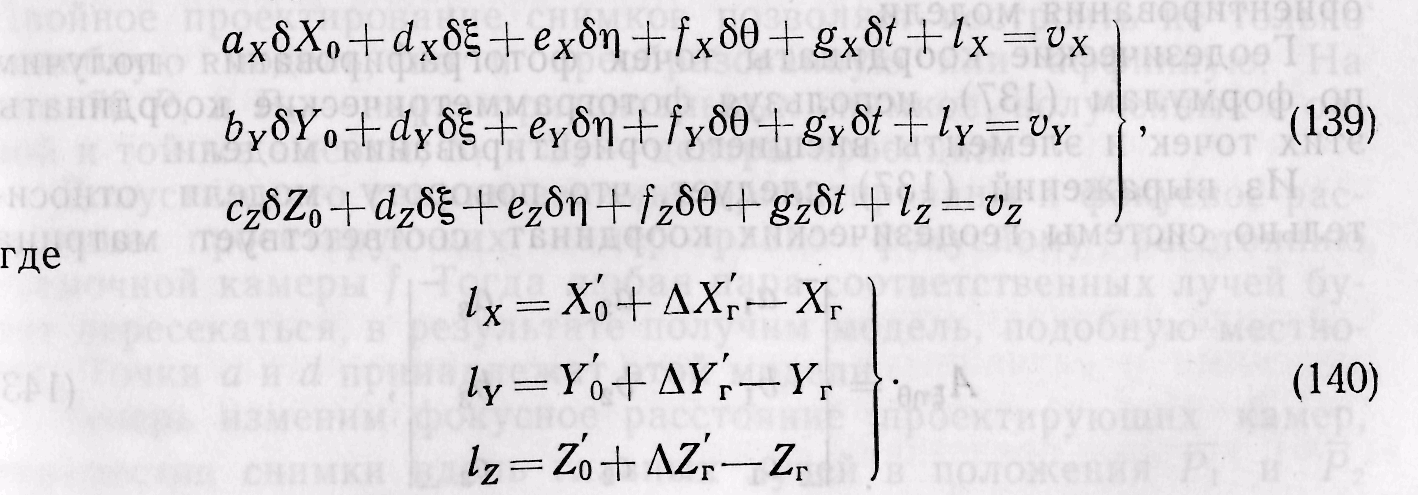 a_XδX₀ + d_Xδξ + e_Xδη + f_Xδθ + g_Xδt + l_X = v_X
b_YδY₀ + d_Yδξ + e_Yδη + f_Yδθ + g_Yδt + l_Y = v_Y }, (139)
c_ZδZ₀ + d_Zδξ + e_Zδη + f_Zδθ + g_Zδt + l_Z = v_Z
где
l_X = X′₀ + ΔX′г − Xг
l_Y = Y′₀ + ΔY′г − Yг }. (140)
l_Z = Z′₀ + ΔZ′г − Zг